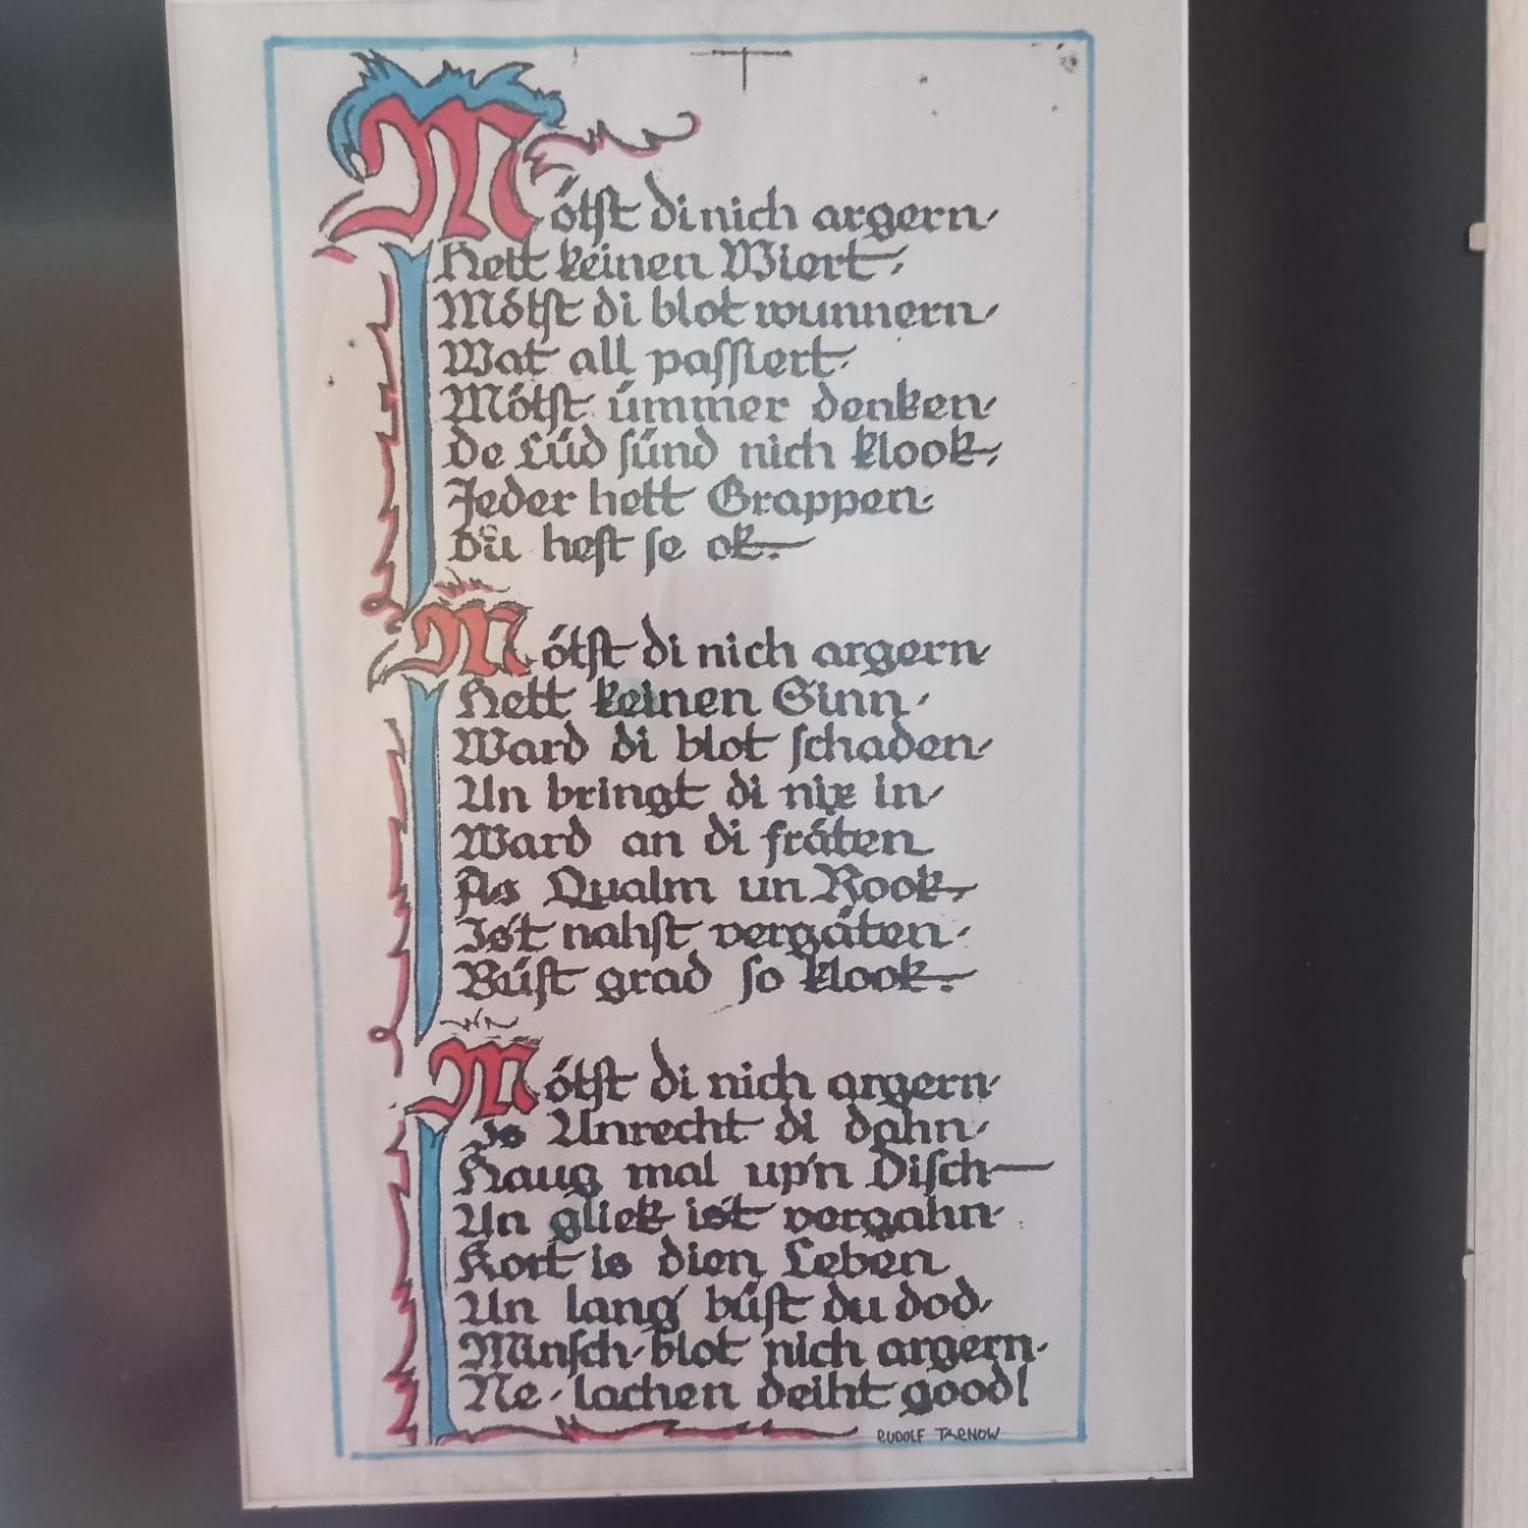 Mötst di nich argern,
Hett keinen Wiert,
Mötst di blot wunnern,
Wat all passiert.
Mötst ümmer denken,
De Lüd sünd nich klook,
Jeder hett Grappen,
Du hest se ok.
Mötst di nich argern,
Hett keinen Sinn,
Ward di blot schaden,
Un bringt di nix in,
Ward an di fräten
As Qualm un Rook,
Ist nahst vergäten,
Büst grad so klook.
Mötst di nich argern,
Is Unrecht di dahn,
Haug mal up'n Disch—
Un gliek is't vergahn.
Kort is dien Leben
Un lang' büst du dod,
Minsch, blot nich argern,
Ne, lachen deiht good!
RUDOLF TARNOW